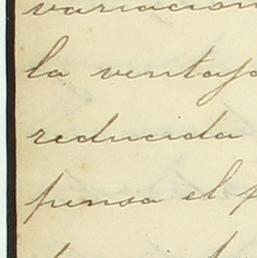 variacion
la ventaja
reducida
pensa el p